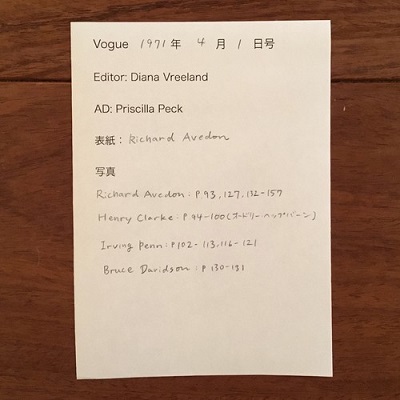 Vogue 1971 年 4 月 1 日号
Editor: Diana Vreeland
AD: Priscilla Peck
表紙： Richard Avedon
写真
Richard Avedon : P.93, 127, 132-157
Henry Clarke : P.94-100 (オードリー・ヘップバーン)
Irving Penn : P102-113, 116-121
Bruce Davidson : P 130-131